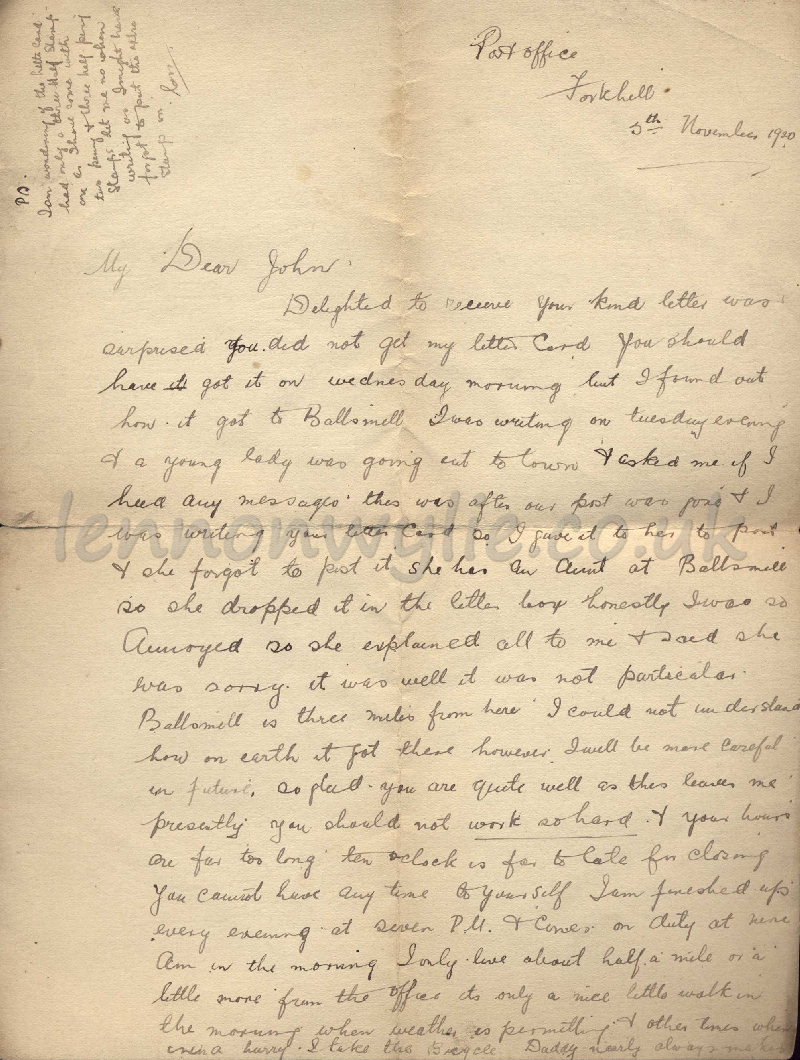 P.S.
I am wondering if the letter card
had only a three half stamp
on as I have some with
two penny & three half penny
stamps let me no when
writing as I might have
forgot to put the extra
stamp on. love
Post office
Forkhill.
5th November 1920
My Dear John.
Delighted to receive your kind letter was
surprised you did not get my letter Card You should
have it got it on wednesday morning but I found out
how it got to Ballsmill I was writing on tuesday evening
& a young lady was going out to town & asked me if I
had any messages this was after our post was going & I
was writing your letter Card so I gave it to her to post
& she forgot to post it she has an Aunt at Ballsmill
so she dropped it in the letter box honestly I was so
Annoyed so she explained all to me & said she
was sorry. it was well it was not particular.
Ballsmill is three miles from here I could not understand
how on earth it got there however I will be more careful
in future. so glad you are quite well as this leaves me
presently you should not work so hard & your hours
are far too long ten oclock is far to late for closing
You cannot have any time to yourself I am finished up
every evening at seven P.M. & Comes on duty at nine
Am in the morning I only live about half a mile or a
little more from the Office its only a nice little walk in
the morning when weather is permitting & other times when
in a hurry I take the Bicycle. Daddy nearly always makes
lennonwylie.co.uk